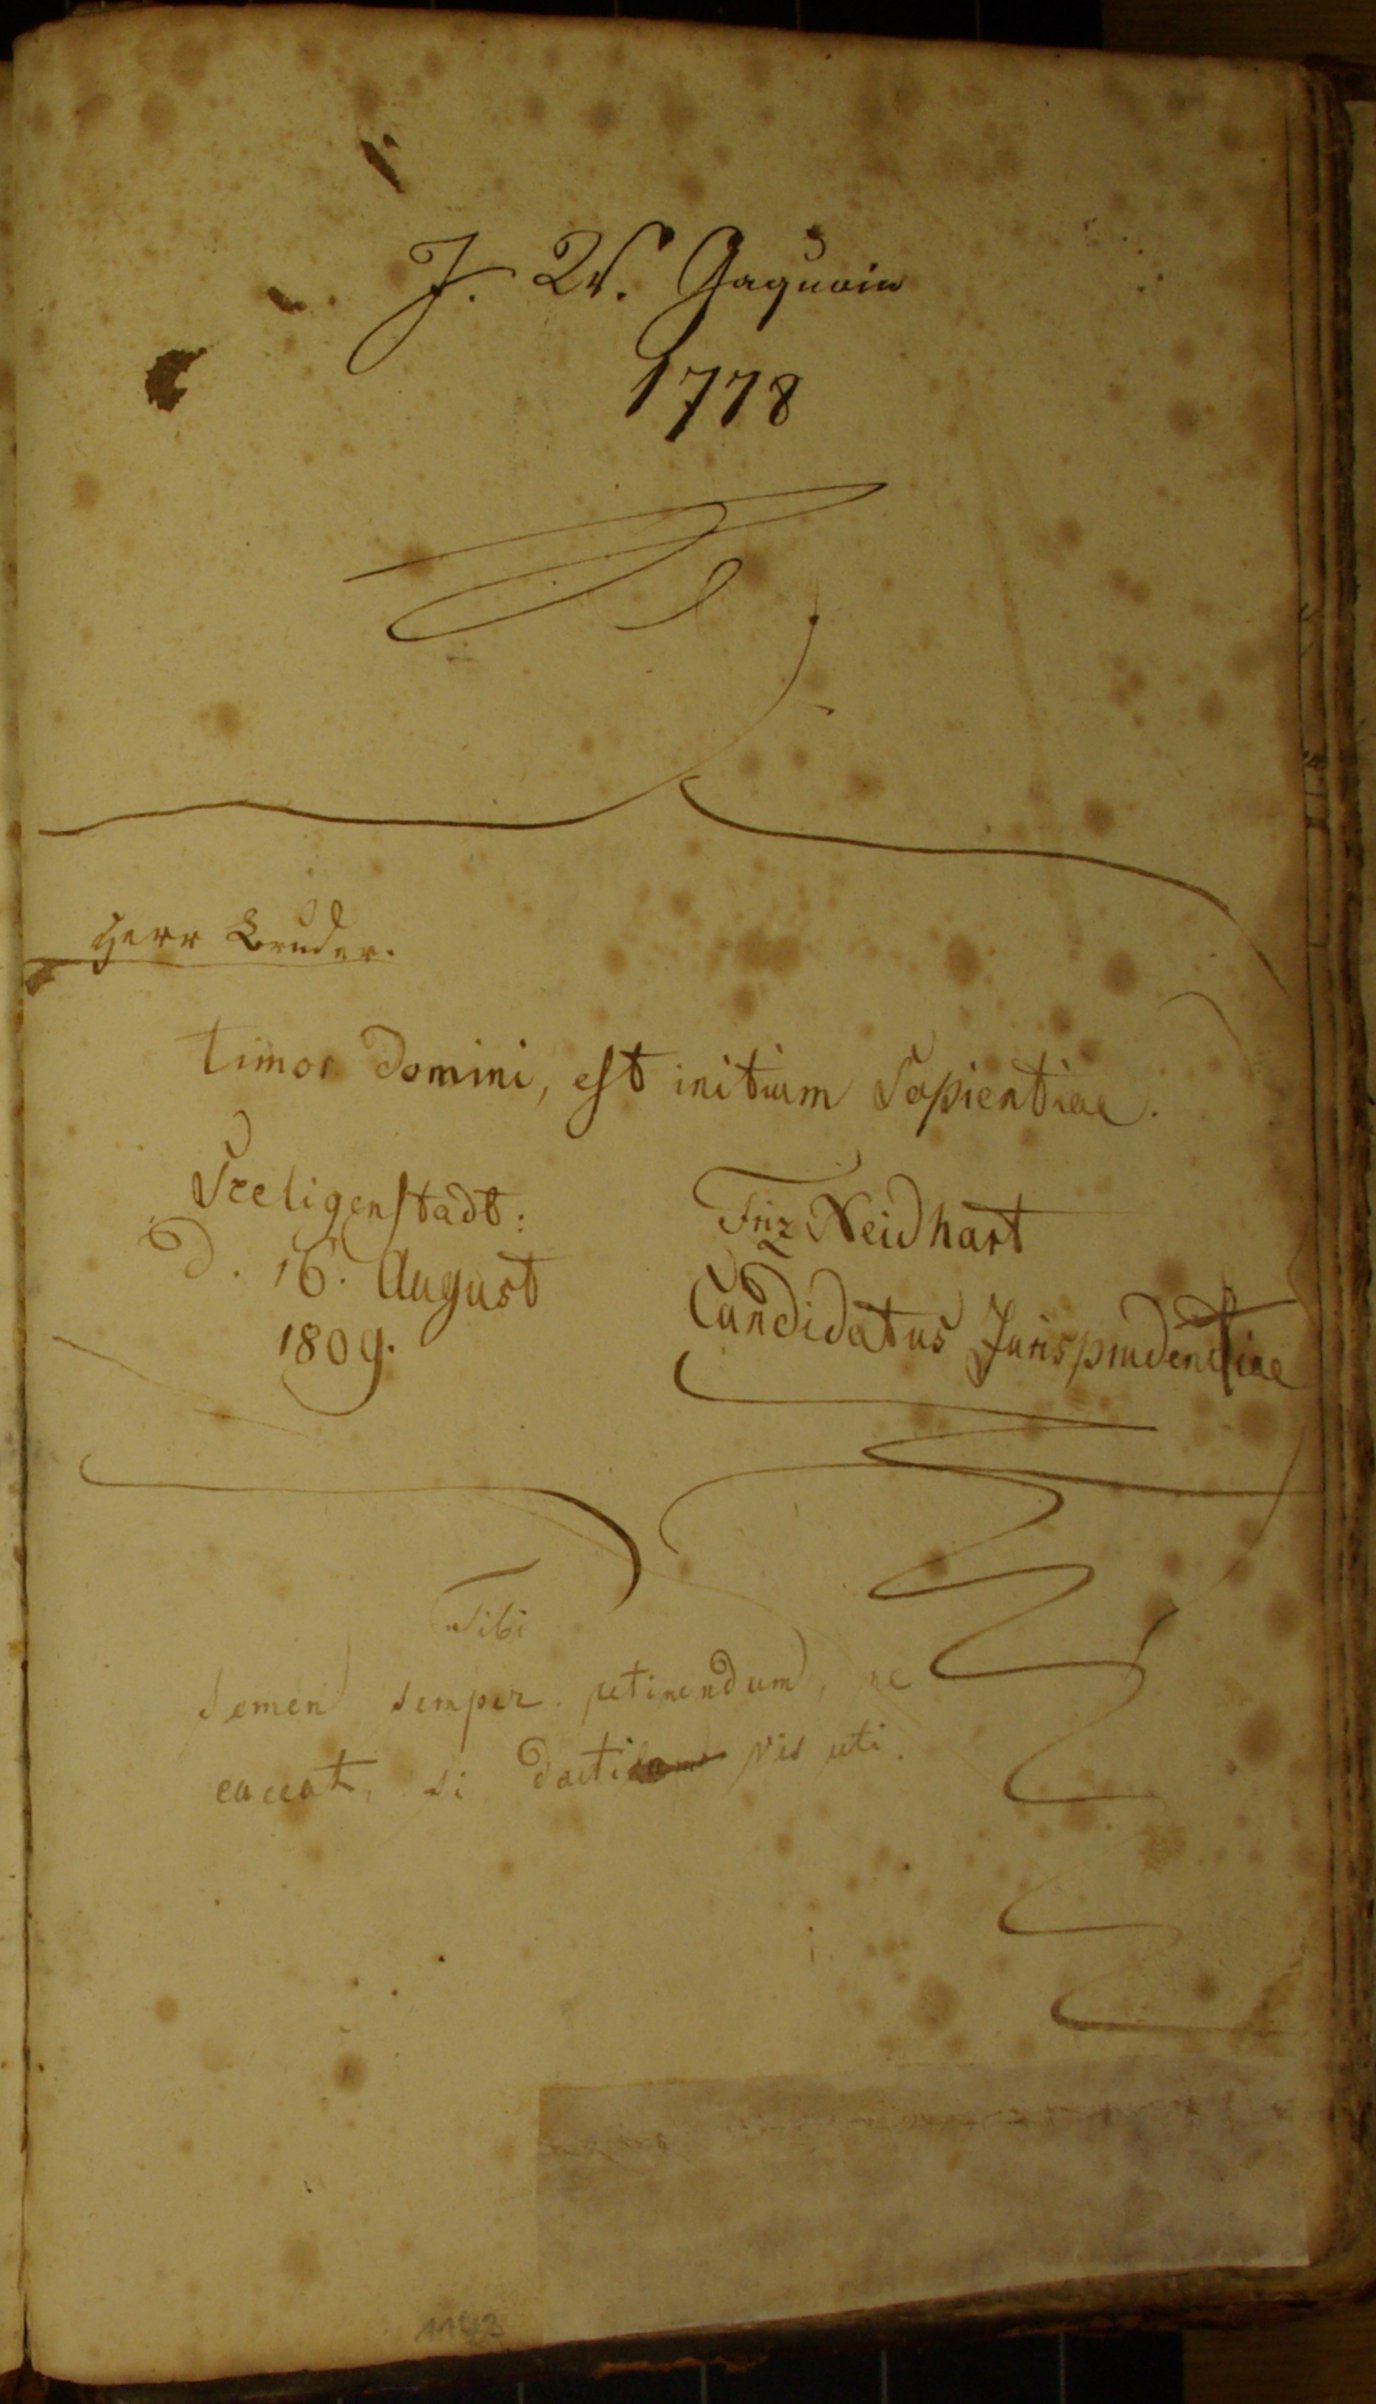 J. W. Gaquoin
1778
Herr Bruder.
timor Domini, est initium Sapientiae.
Seeligenstadt:
d. 16. August
1809.
Friz Neidhart
Candidatus Jurisprudentiae
Tibi
semen semper retinendum, ne
eaceat, si vis uti.
1142